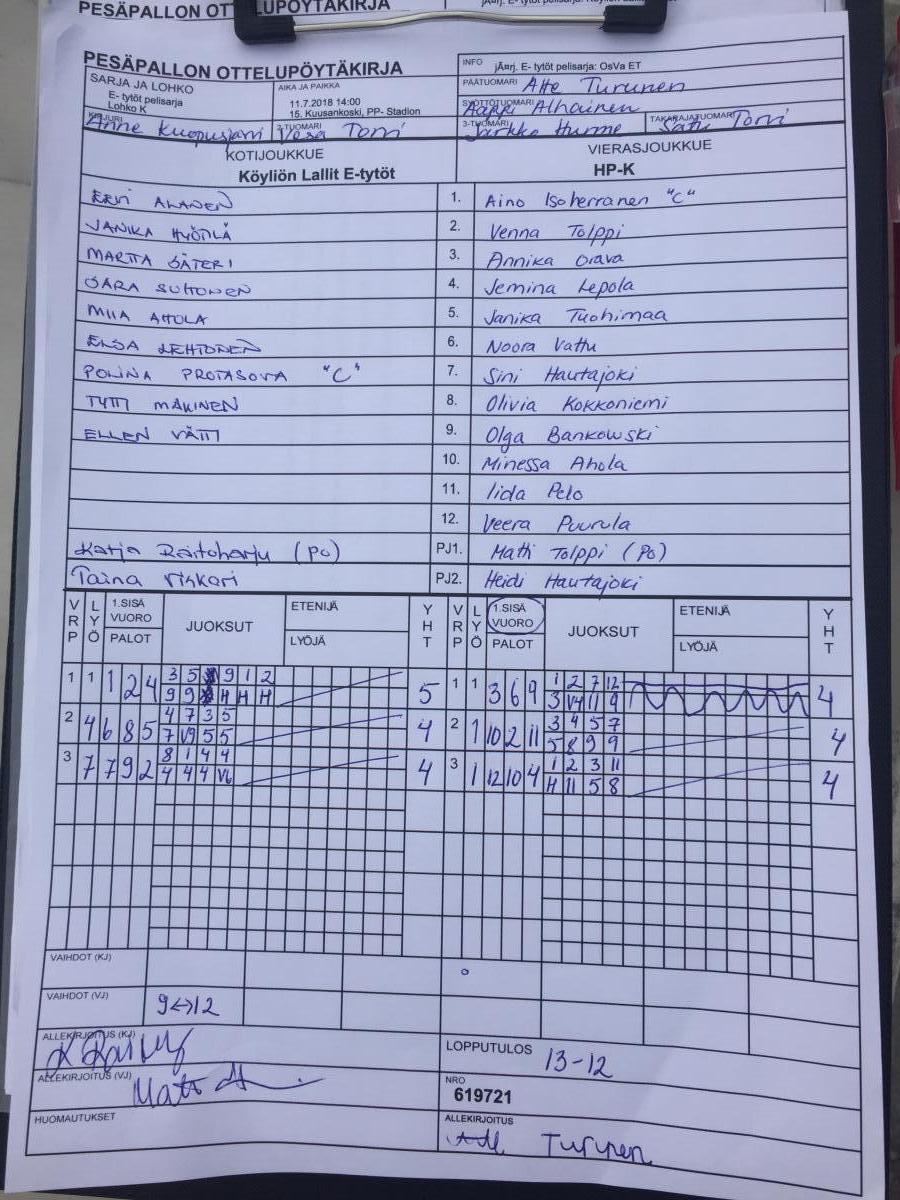 PESÄPALLON OTTELUPÖYTÄKIRJA
PESÄPALLON OTTELUPÖYTÄKIRJA
SARJA JA LOHKO
E- tytöt pelisarja
Lohko K
AIKA JA PAIKKA
11.7.2018 14:00
15. Kuusankoski, PP- Stadion
INFO jÃ¤rj. E- tytöt pelisarja: OsVa ET
PÄÄTUOMARI Atte Turunen
SYÖTTÖTUOMARI Aappi Alhainen
KIRJURI Anne Kuopusjärvi
2-TUOMARI Vesa Torri
3-TUOMARI Jarkko Hurme
TAKARAJATUOMARI Satu Torri
KOTIJOUKKUE
Köyliön Lallit E-tytöt
VIERASJOUKKUE
HP-K
EEVI ALANEN 1. Aino Isoherranen "C"
JANIKA HYÖTLÄ 2. Venna Tolppi
MARTTA SÄTERI 3. Annika Orava
SARA SUTONEN 4. Jemina Lepola
MIIA AHOLA 5. Janika Tuohimaa
ELSA LEHTONEN 6. Noora Vattu
POLINA PROTASOVA "C" 7. Sini Hautajoki
TYTTI MÄKINEN 8. Olivia Kokkoniemi
ELLEN VÄTTI 9. Olga Bankowski
10. Minessa Ahola
11. Iida Pelo
12. Veera Puurula
Katja Raitoharju (PO) PJ1. Matti Tolppi (PO)
Taina Viskari PJ2. Heidi Hautajoki
VRP LYÖ 1.SISÄ VUORO PALOT JUOKSUT ETENIJÄ LYÖJÄ YHT VRP LYÖ 1.SISÄ VUORO PALOT JUOKSUT ETENIJÄ LYÖJÄ YHT
1 1 1 2 4 3 5 9 1 2 5 1 1 3 6 9 1 2 7 12 4
9 9 H H H 3 V4 11 9
2 4 6 8 5 4 7 3 5 4 2 1 10 2 11 3 4 5 7 4
7 V9 5 5 5 8 9 9
3 7 7 9 2 8 1 4 4 4 3 1 12 10 4 1 2 3 11 4
4 4 4 V6 H 11 5 8
VAIHDOT (KJ)
VAIHDOT (VJ) 9↔12
ALLEKIRJOITUS (KJ)
LOPPUTULOS 13-12
ALLEKIRJOITUS (VJ)
NRO
619721
HUOMAUTUKSET
ALLEKIRJOITUS
Turunen